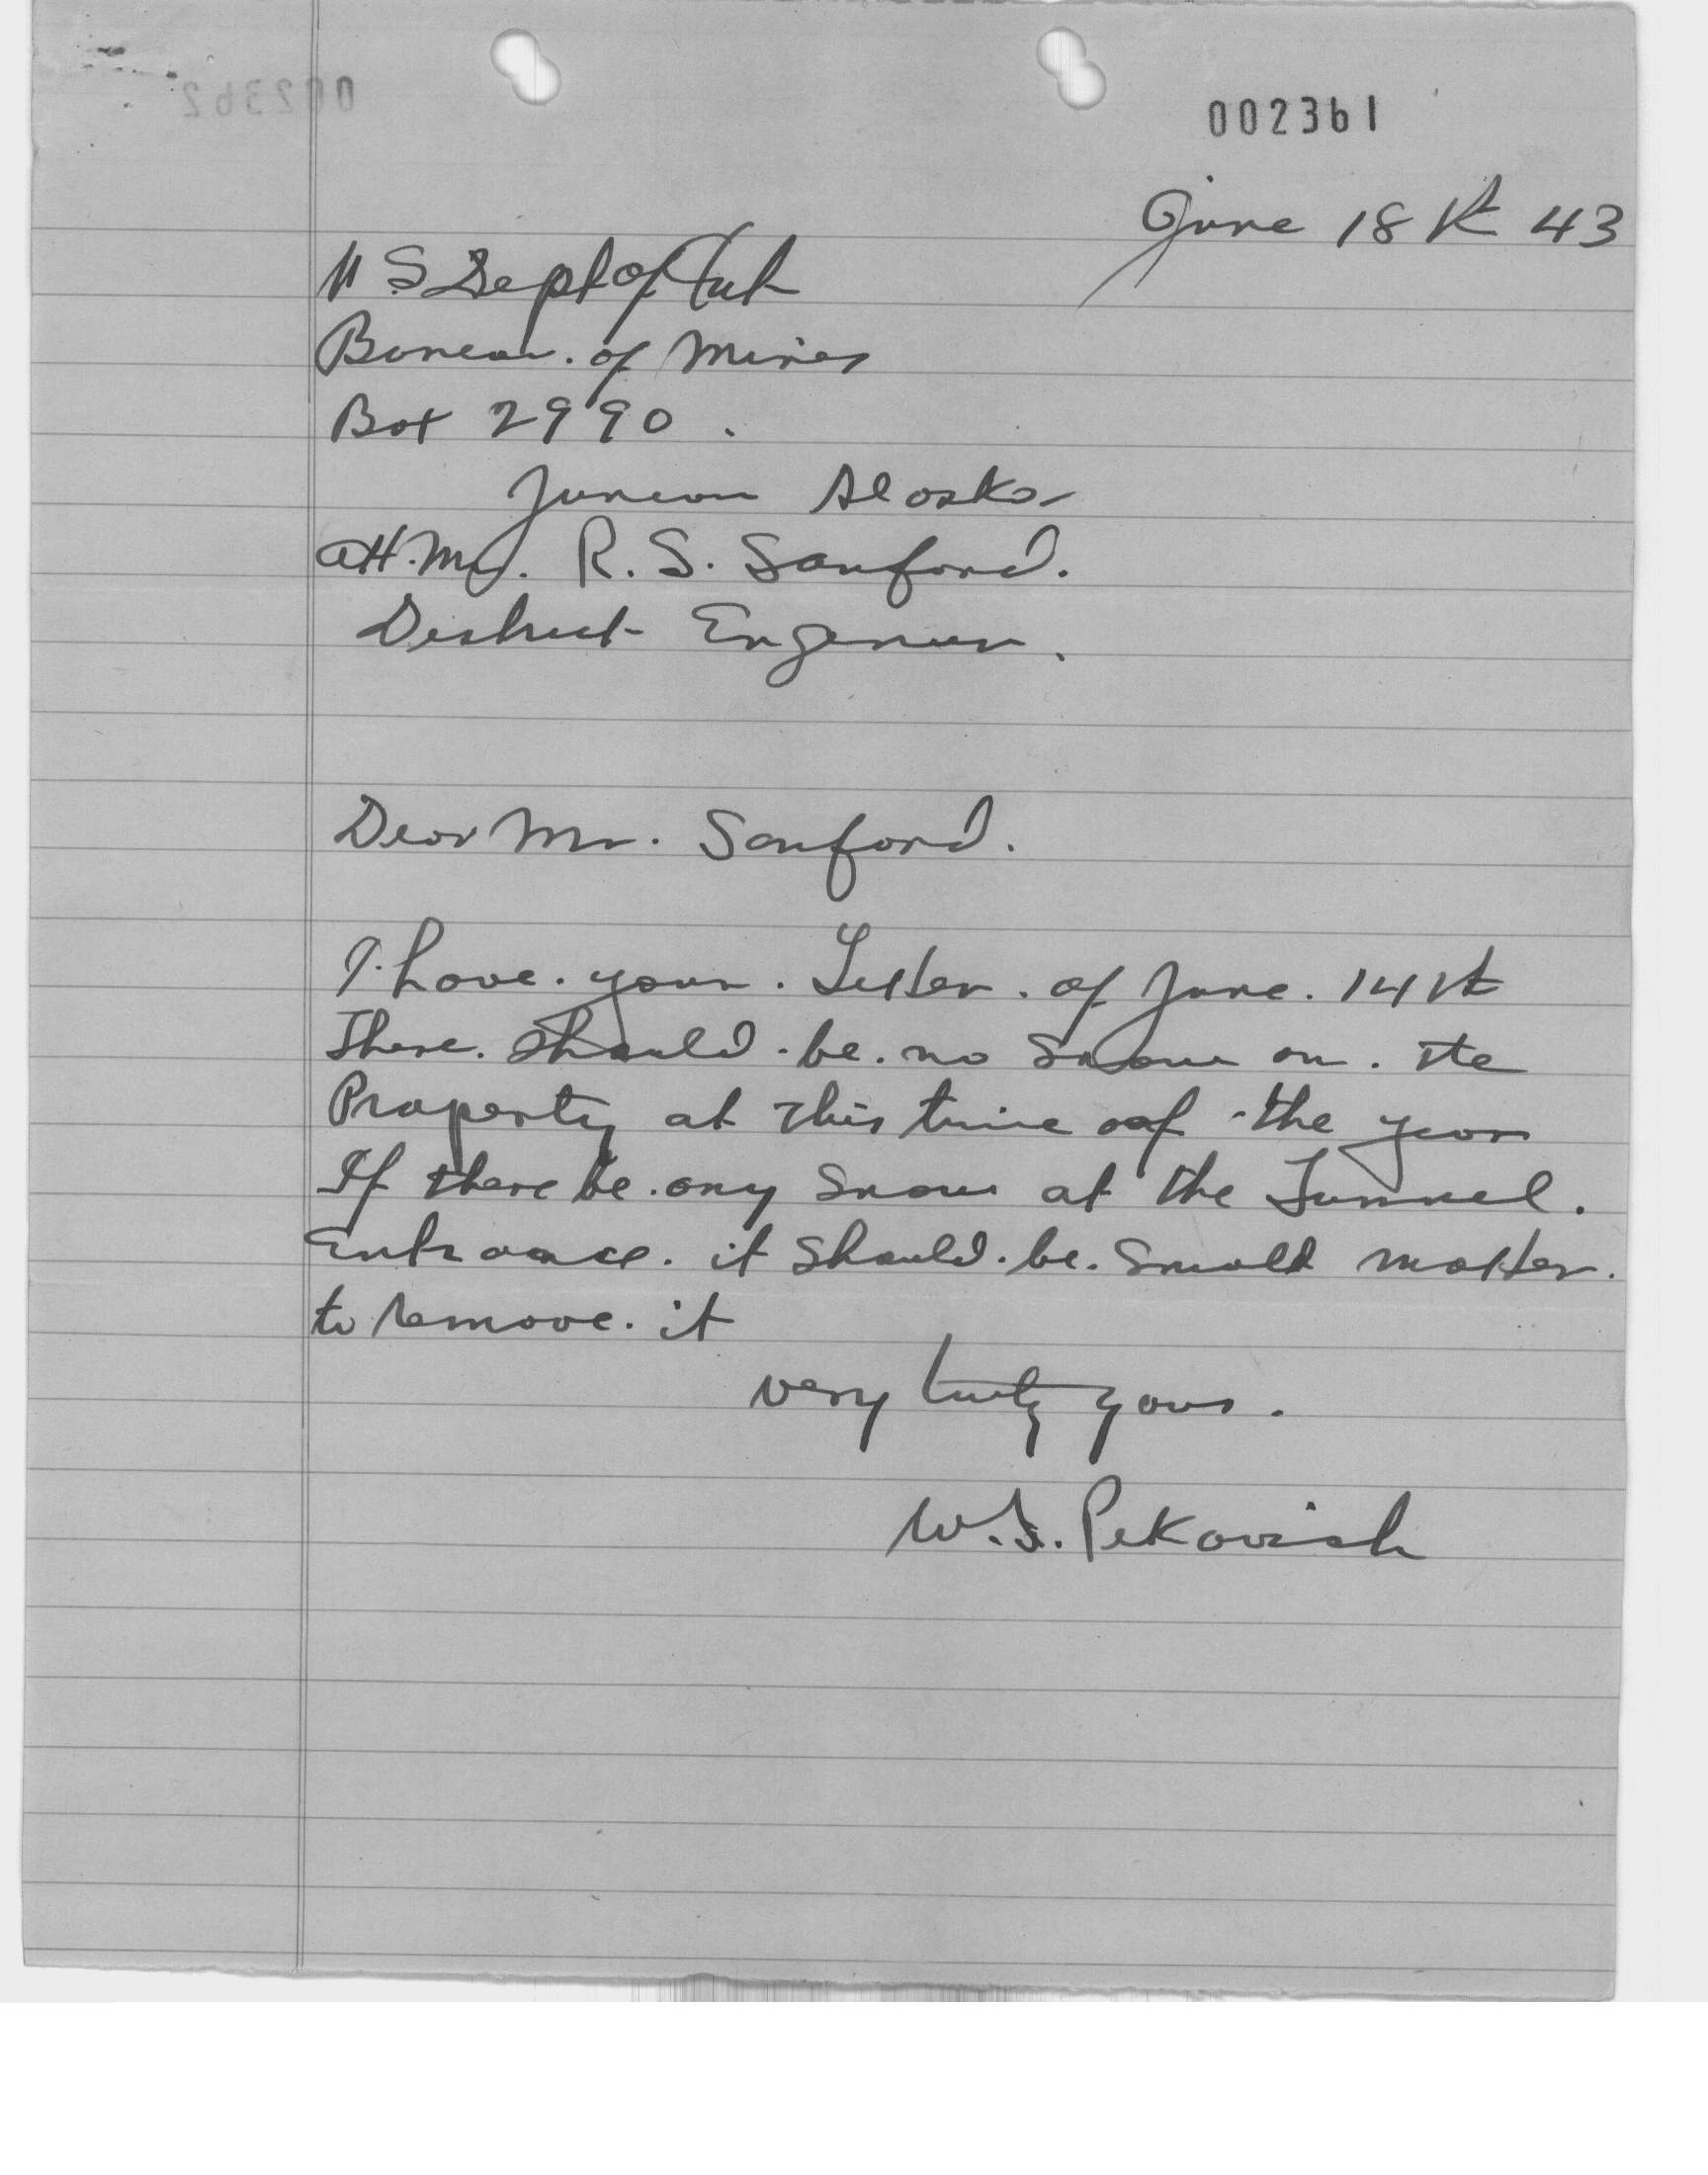 002362
002361
June 18th 43
U S Dept of Int
Bureau. of Mines
Box 2990.
Juneau Alaska
att. Mr. R. S. Sanford.
District Engeneer.
Dear Mr. Sanford.
I have. your. Letter. of June. 14th
There. should. be. no snow on. the
Property at this time oof the year
If there be. any snow at the Tunnel.
Entrance. it should. be. small matter.
to remove. it
very truly yours.
W. S. Pekovich